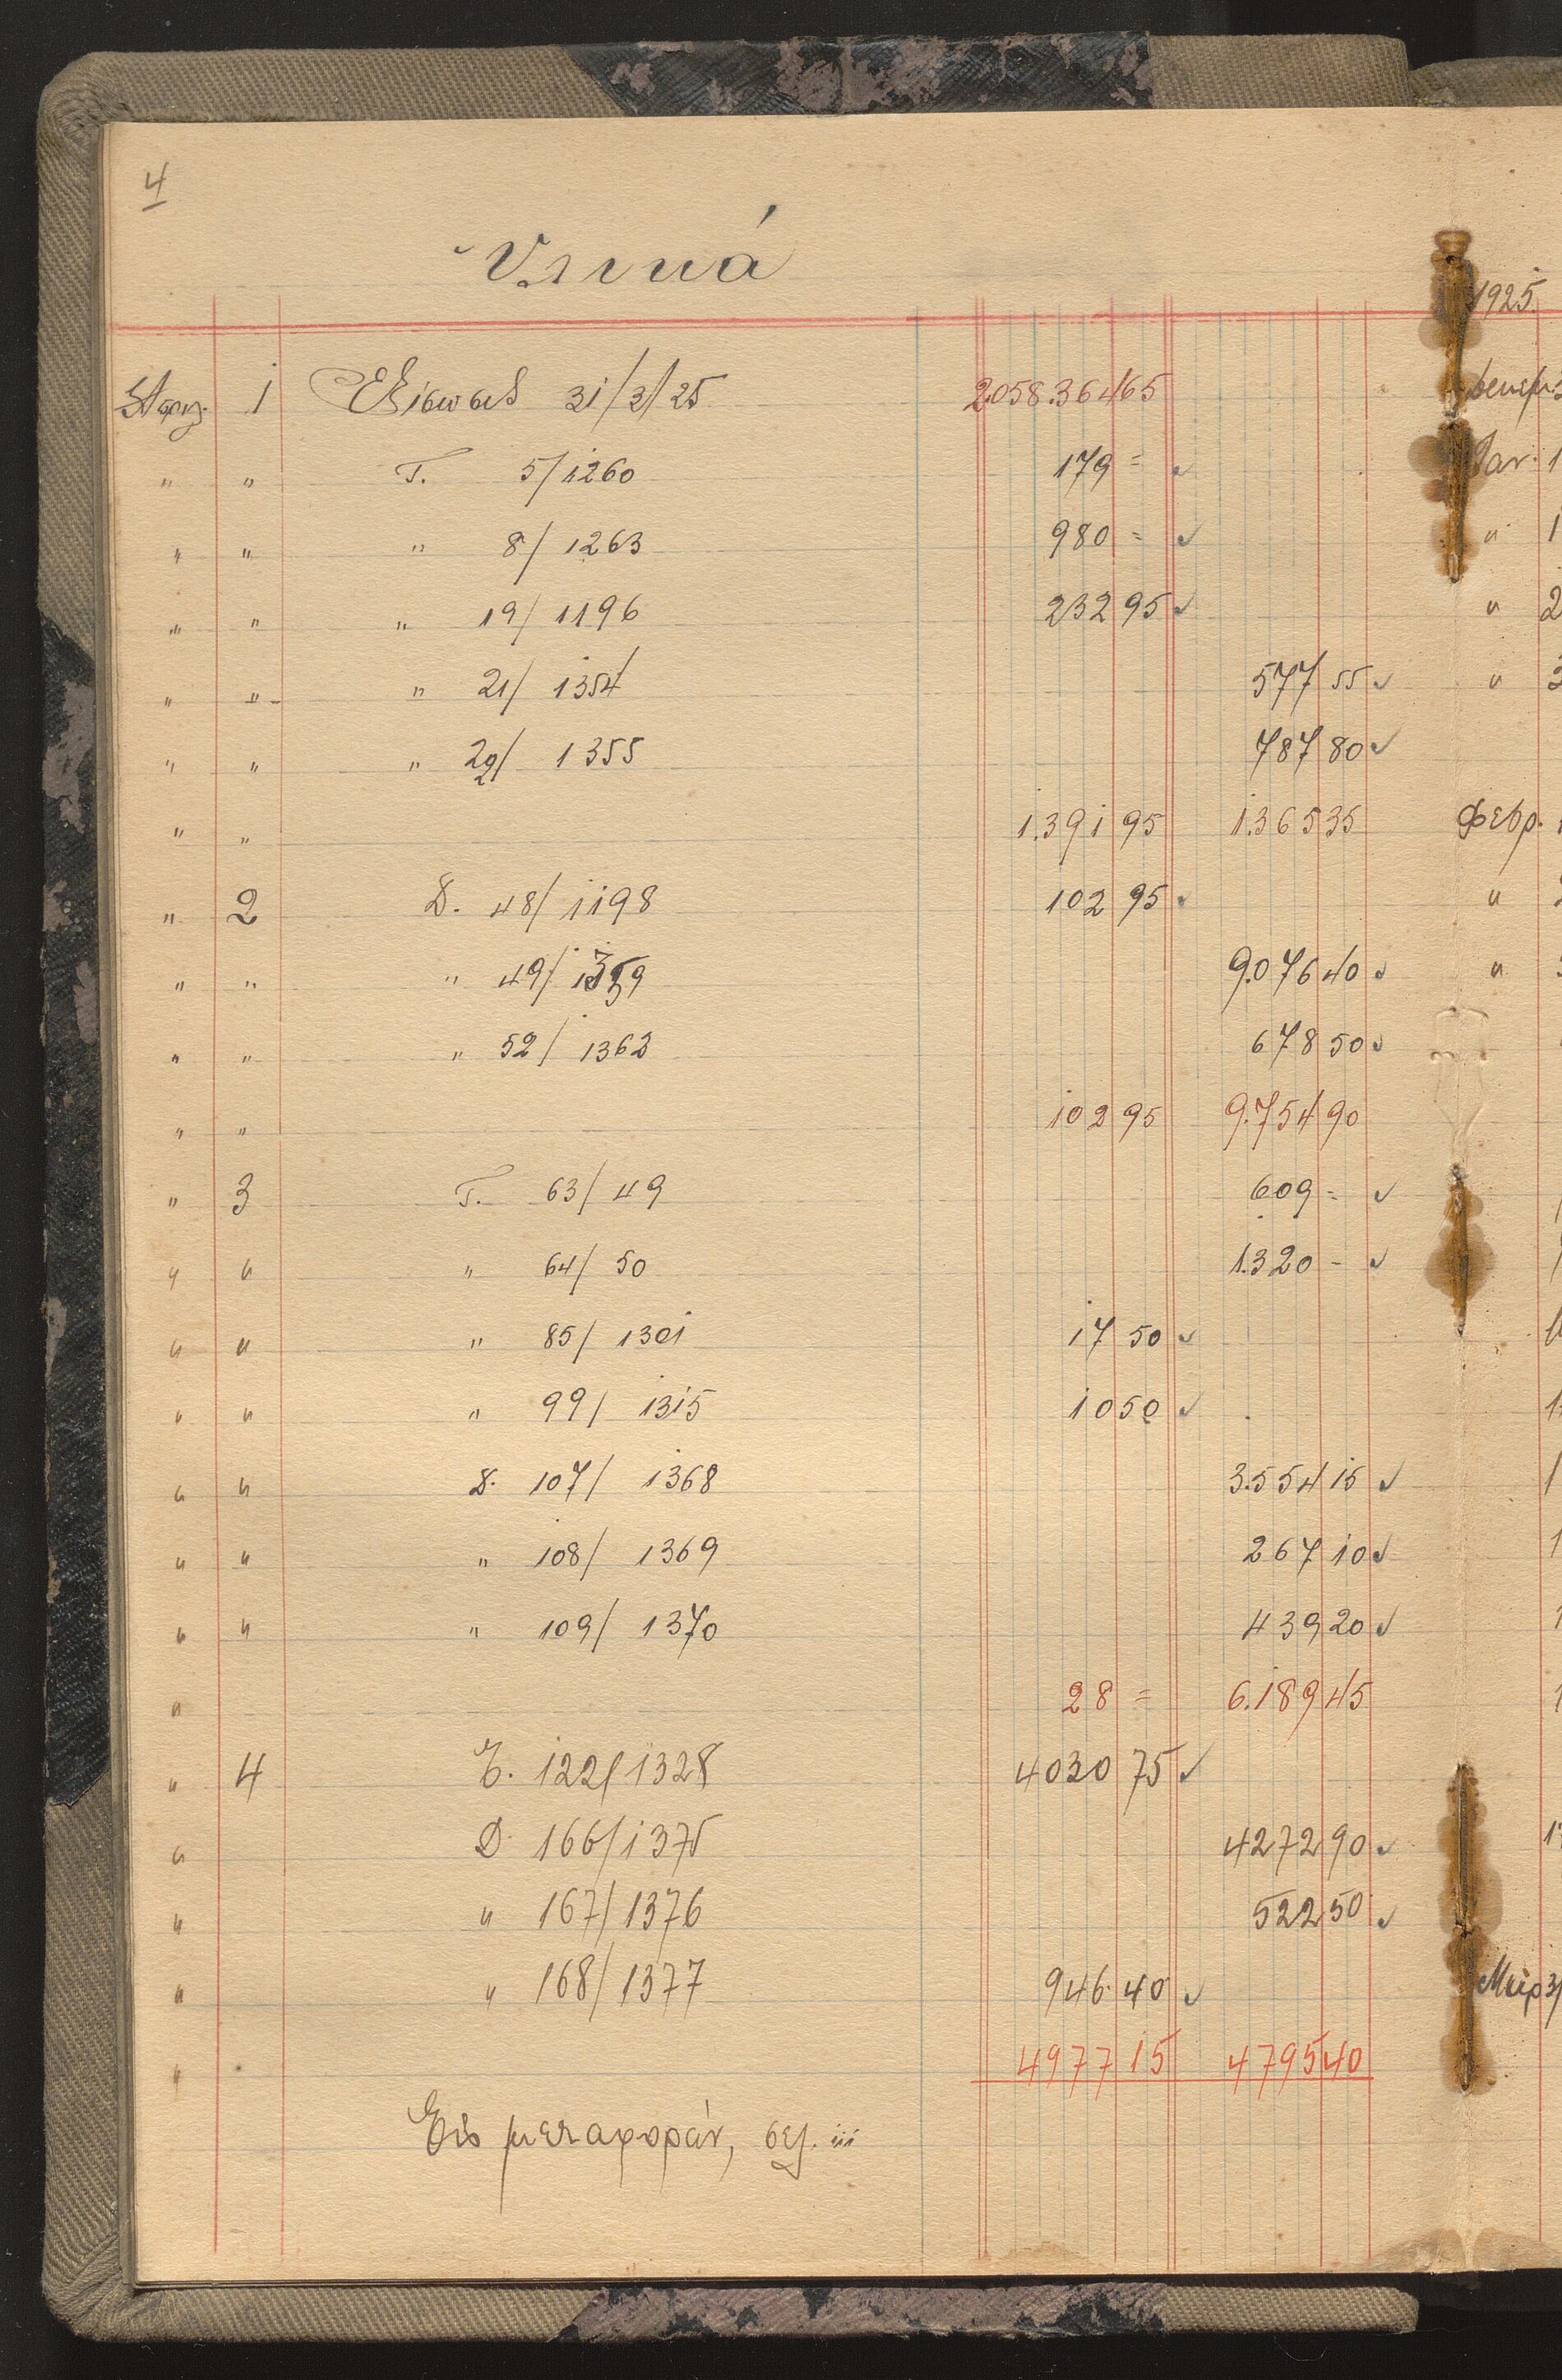 4
Υλικά
Απριλ. 1 Εξίσωσις 31/3/25 2.058.364 65
" " Τ. 5/1260 179 =
" " " 8/1263 980 =
" " " 19/1196 232 95
" " " 21/1354 577 55
" " " 22/1355 787 80
" " 1.391 95 1.365 35
" 2 D. 48/1198 102 95
" " " 49/1359 9.076 40
" " " 52/1362 678 50
" " 102 95 9.754 90
" 3 Τ. 63/49 609 =
" " " 64/50 1.320 -
" " " 85/1301 17 50
" " " 99/1315 10 50
" " D. 107/1368 3.554 15
" " " 108/1369 267 10
" " " 109/1370 439 20
" 28 = 6.189 45
" 4 Τ. 122/1328 4030 75
" D. 166/1375 4272 90
" " 167/1376 522 50
" " 168/1377 946 40
" 4977 15 4795 40
Εἰς μεταφοράν, σελ. iii
1925.
Δεκεμ. 3
Ιαν. 1
" 1
" 2
" 3
Φεβρ.
"
"
Μάρ 31